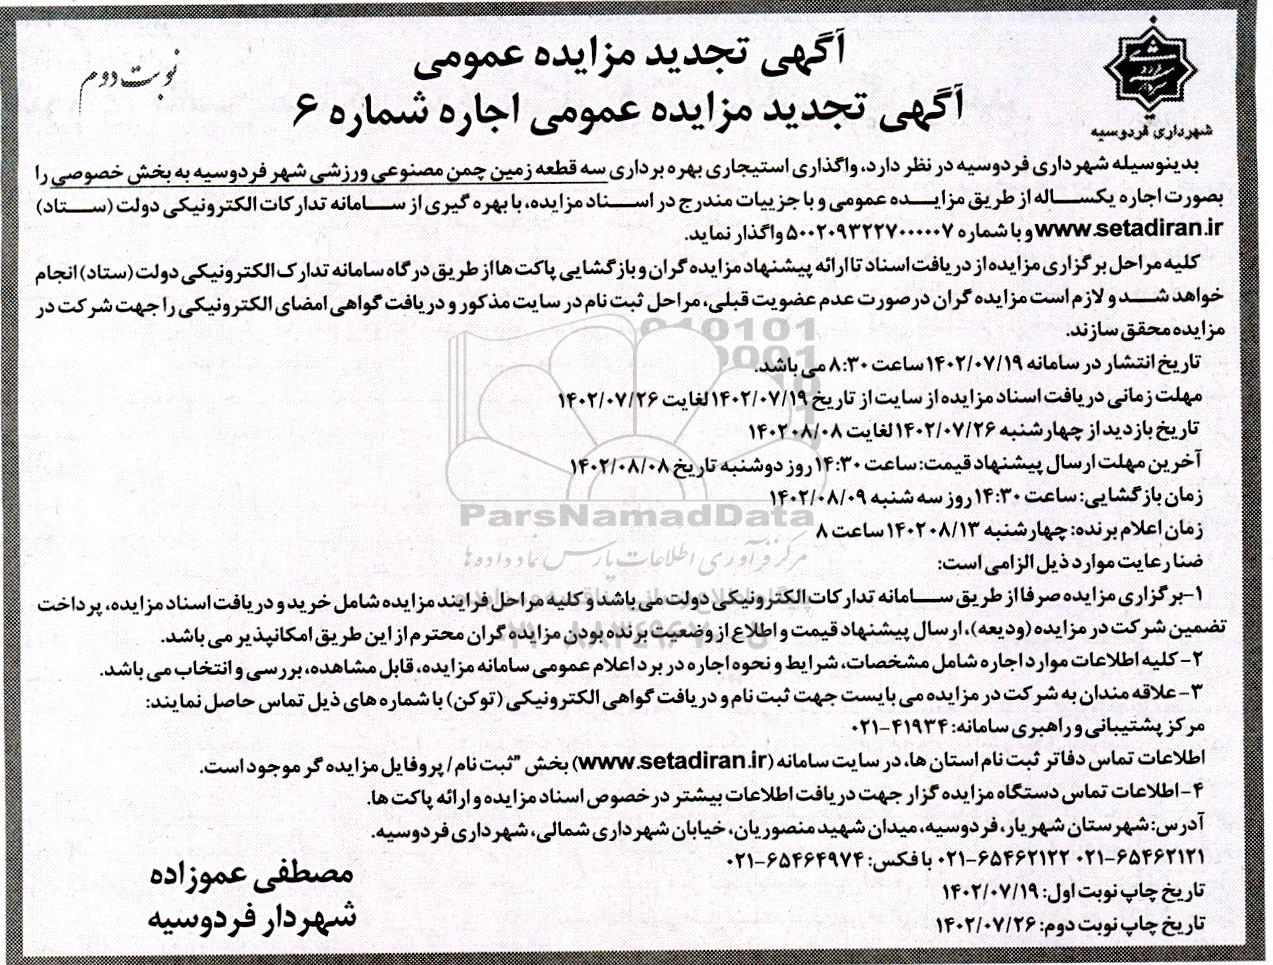 آگهی تجدید مزایده عمومی
آگهی تجدید مزایده عمومی اجاره شماره ۶
نوبت دوم
شهرداری فردوسیه
بدینوسیله شهرداری فردوسیه در نظر دارد، واگذاری استیجاری بهره برداری سه قطعه زمین چمن مصنوعی ورزشی شهر فردوسیه به بخش خصوصی را
بصورت اجاره یکساله از طریق مزایده عمومی و با جزییات مندرج در اسناد مزایده، با بهره گیری از سامانه تدارکات الکترونیکی دولت (ستاد)
www.setadiran.ir و با شماره ۵۰۰۲۰۹۳۲۲۷۰۰۰۰۰۷ واگذار نماید.
کلیه مراحل برگزاری مزایده از دریافت اسناد تا ارائه پیشنهاد مزایده گران و بازگشایی پاکت ها از طریق درگاه سامانه تدارک الکترونیکی دولت (ستاد) انجام
خواهد شد و لازم است مزایده گران درصورت عدم عضویت قبلی، مراحل ثبت نام در سایت مذکور و دریافت گواهی امضای الکترونیکی را جهت شرکت در
مزایده محقق سازند.
تاریخ انتشار در سامانه ۱۴۰۲/۰۷/۱۹ ساعت ۸:۳۰ می باشد.
مهلت زمانی دریافت اسناد مزایده از سایت از تاریخ ۱۴۰۲/۰۷/۱۹ لغایت ۱۴۰۲/۰۷/۲۶
تاریخ بازدید از چهارشنبه ۱۴۰۲/۰۷/۲۶ لغایت ۱۴۰۲۰۸/۰۸
آخرین مهلت ارسال پیشنهاد قیمت: ساعت ۱۴:۳۰ روز دوشنبه تاریخ ۱۴۰۲/۰۸/۰۸
زمان بازگشایی: ساعت ۱۴:۳۰ روز سه شنبه ۱۴۰۲/۰۸/۰۹
زمان اعلام برنده: چهارشنبه ۱۴۰۲۰۸/۱۳ ساعت ۸
ضنا رعایت موارد ذیل الزامی است:
۱-برگزاری مزایده صرفا از طریق سامانه تدارکات الکترونیکی دولت می باشد و کلیه مراحل فرایند مزایده شامل خرید و دریافت اسناد مزایده، پرداخت
تضمین شرکت در مزایده (ودیعه)، ارسال پیشنهاد قیمت و اطلاع از وضعیت برنده بودن مزایده گران محترم از این طریق امکانپذیر می باشد.
۲-کلیه اطلاعات موارد اجاره شامل مشخصات، شرایط و نحوه اجاره در برد اعلام عمومی سامانه مزایده، قابل مشاهده، بررسی و انتخاب می باشد.
۳-علاقه مندان به شرکت در مزایده می بایست جهت ثبت نام و دریافت گواهی الکترونیکی (توکن) با شماره های ذیل تماس حاصل نمایند:
مرکز پشتیبانی و راهبری سامانه: ۴۱۹۳۴-۰۲۱
اطلاعات تماس دفاتر ثبت نام استان ها، در سایت سامانه (www.setadiran.ir) بخش "ثبت نام/ پروفایل مزایده گر موجود است.
۴-اطلاعات تماس دستگاه مزایده گزار جهت دریافت اطلاعات بیشتر در خصوص اسناد مزایده و ارائه پاکت ها.
آدرس: شهرستان شهریار، فردوسیه، میدان شهید منصوریان، خیابان شهرداری شمالی، شهرداری فردوسیه.
۰۲۱-۶۵۴۶۲۱۲۱ ۰۲۱-۶۵۴۶۲۱۲۲ با فکس: ۰۲۱-۶۵۴۶۴۹۷۴
تاریخ چاپ نوبت اول: ۱۴۰۲/۰۷/۱۹
تاریخ چاپ نوبت دوم: ۱۴۰۲/۰۷/۲۶
مصطفی عموزاده
شهردار فردوسیه
ParsNamadData
مرکز فرآوری اطلاعات پارس نماد داده ها